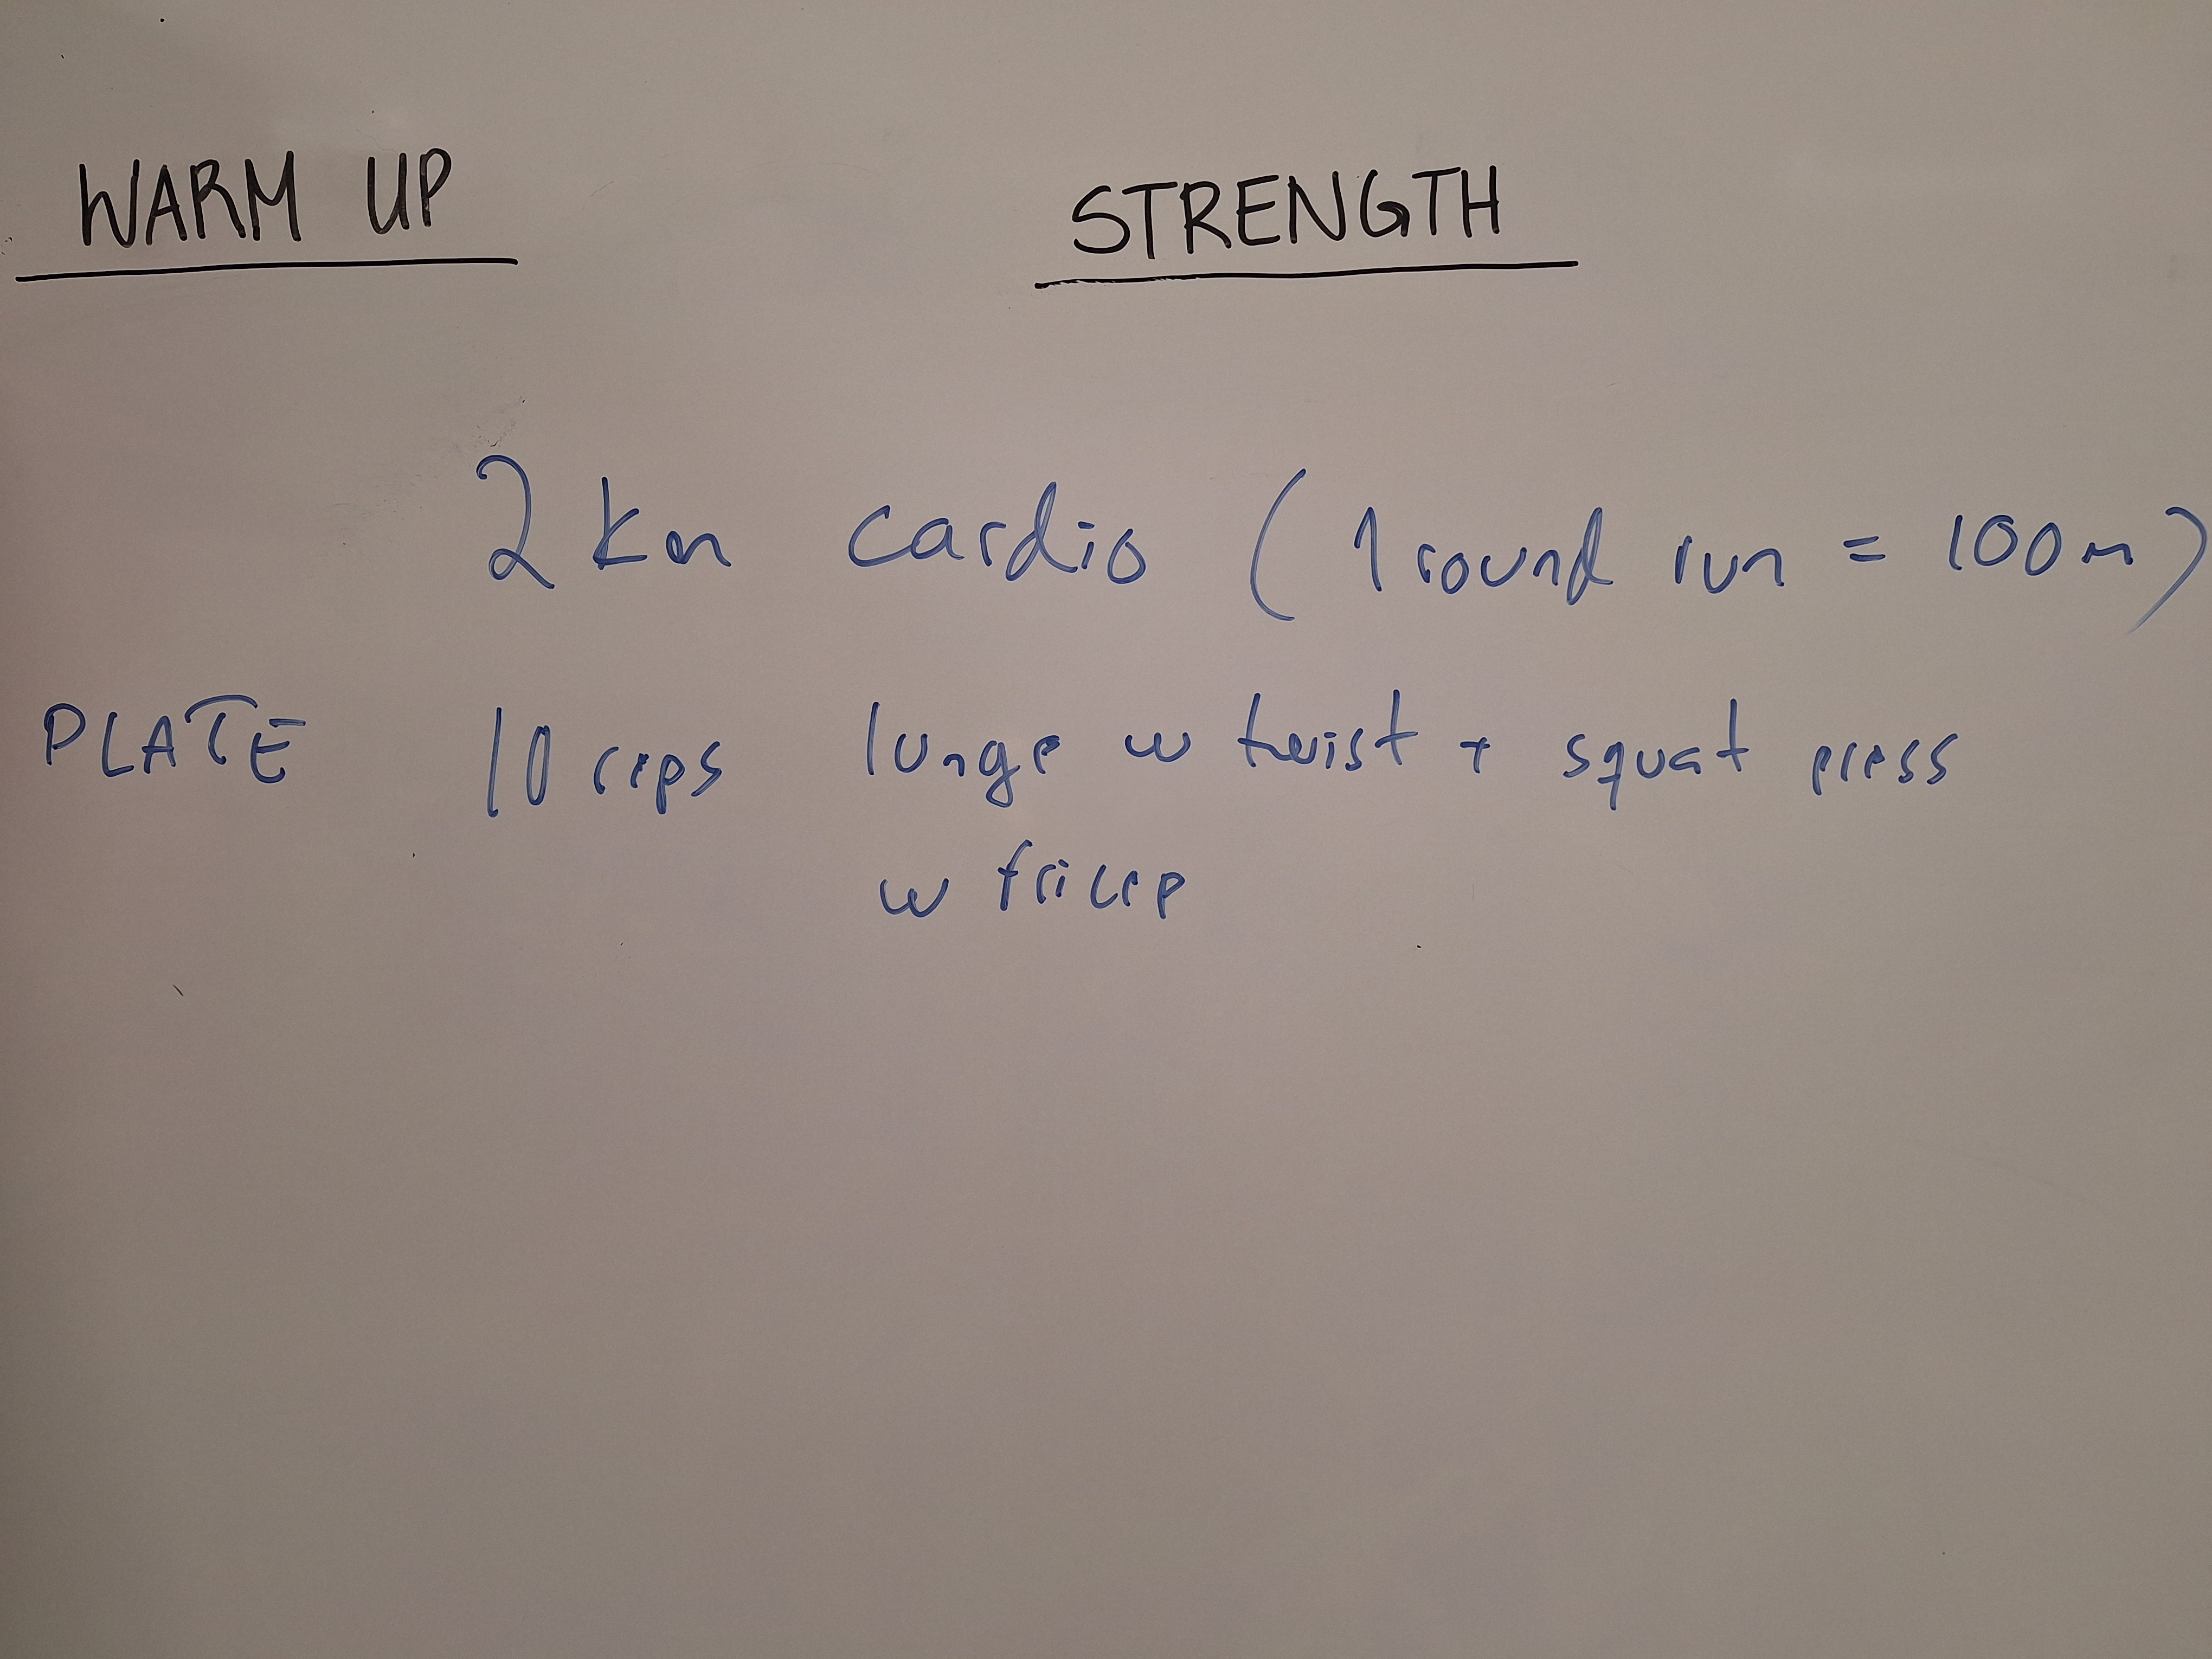 WARM UP STRENGTH
2 km cardio (1 round run = 100 m)
PLATE 10 reps lunge w twist + squat press
w tricep